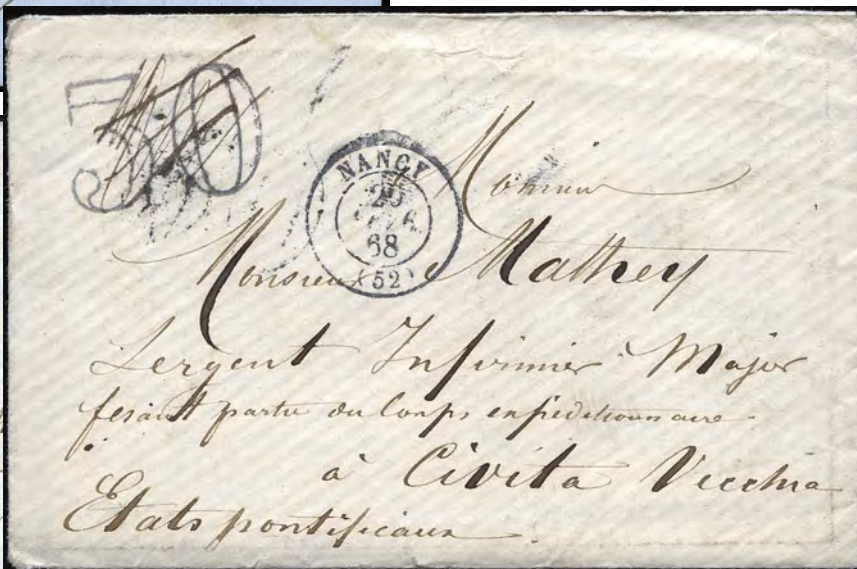 30
NANCY
68
(52)
Monsieur
Monsieur Mathey
Sergent Infirmier Major
fesant partie du Corps expéditionnaire
à Civita Vecchia
Etats pontificaux